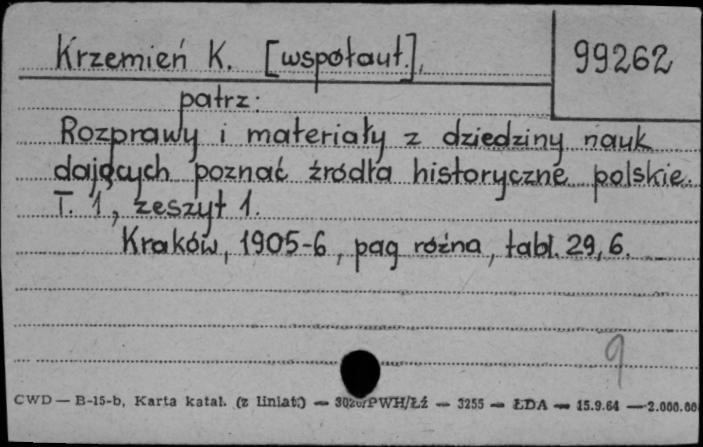 Krzemień K. [współaut.], 99262
patrz:
Rozprawy i materiały z dziedziny nauk
dających poznać źródła historyczne polskie.
T. 1, zeszyt 1.
Kraków, 1905-6, pag różna, tabl. 29, 6.
9
CWD — B-15-b, Karta katal. (z liniat.) — PWH/Łź — 3255 — ŁDA — 15.9.64 — 2.000.00